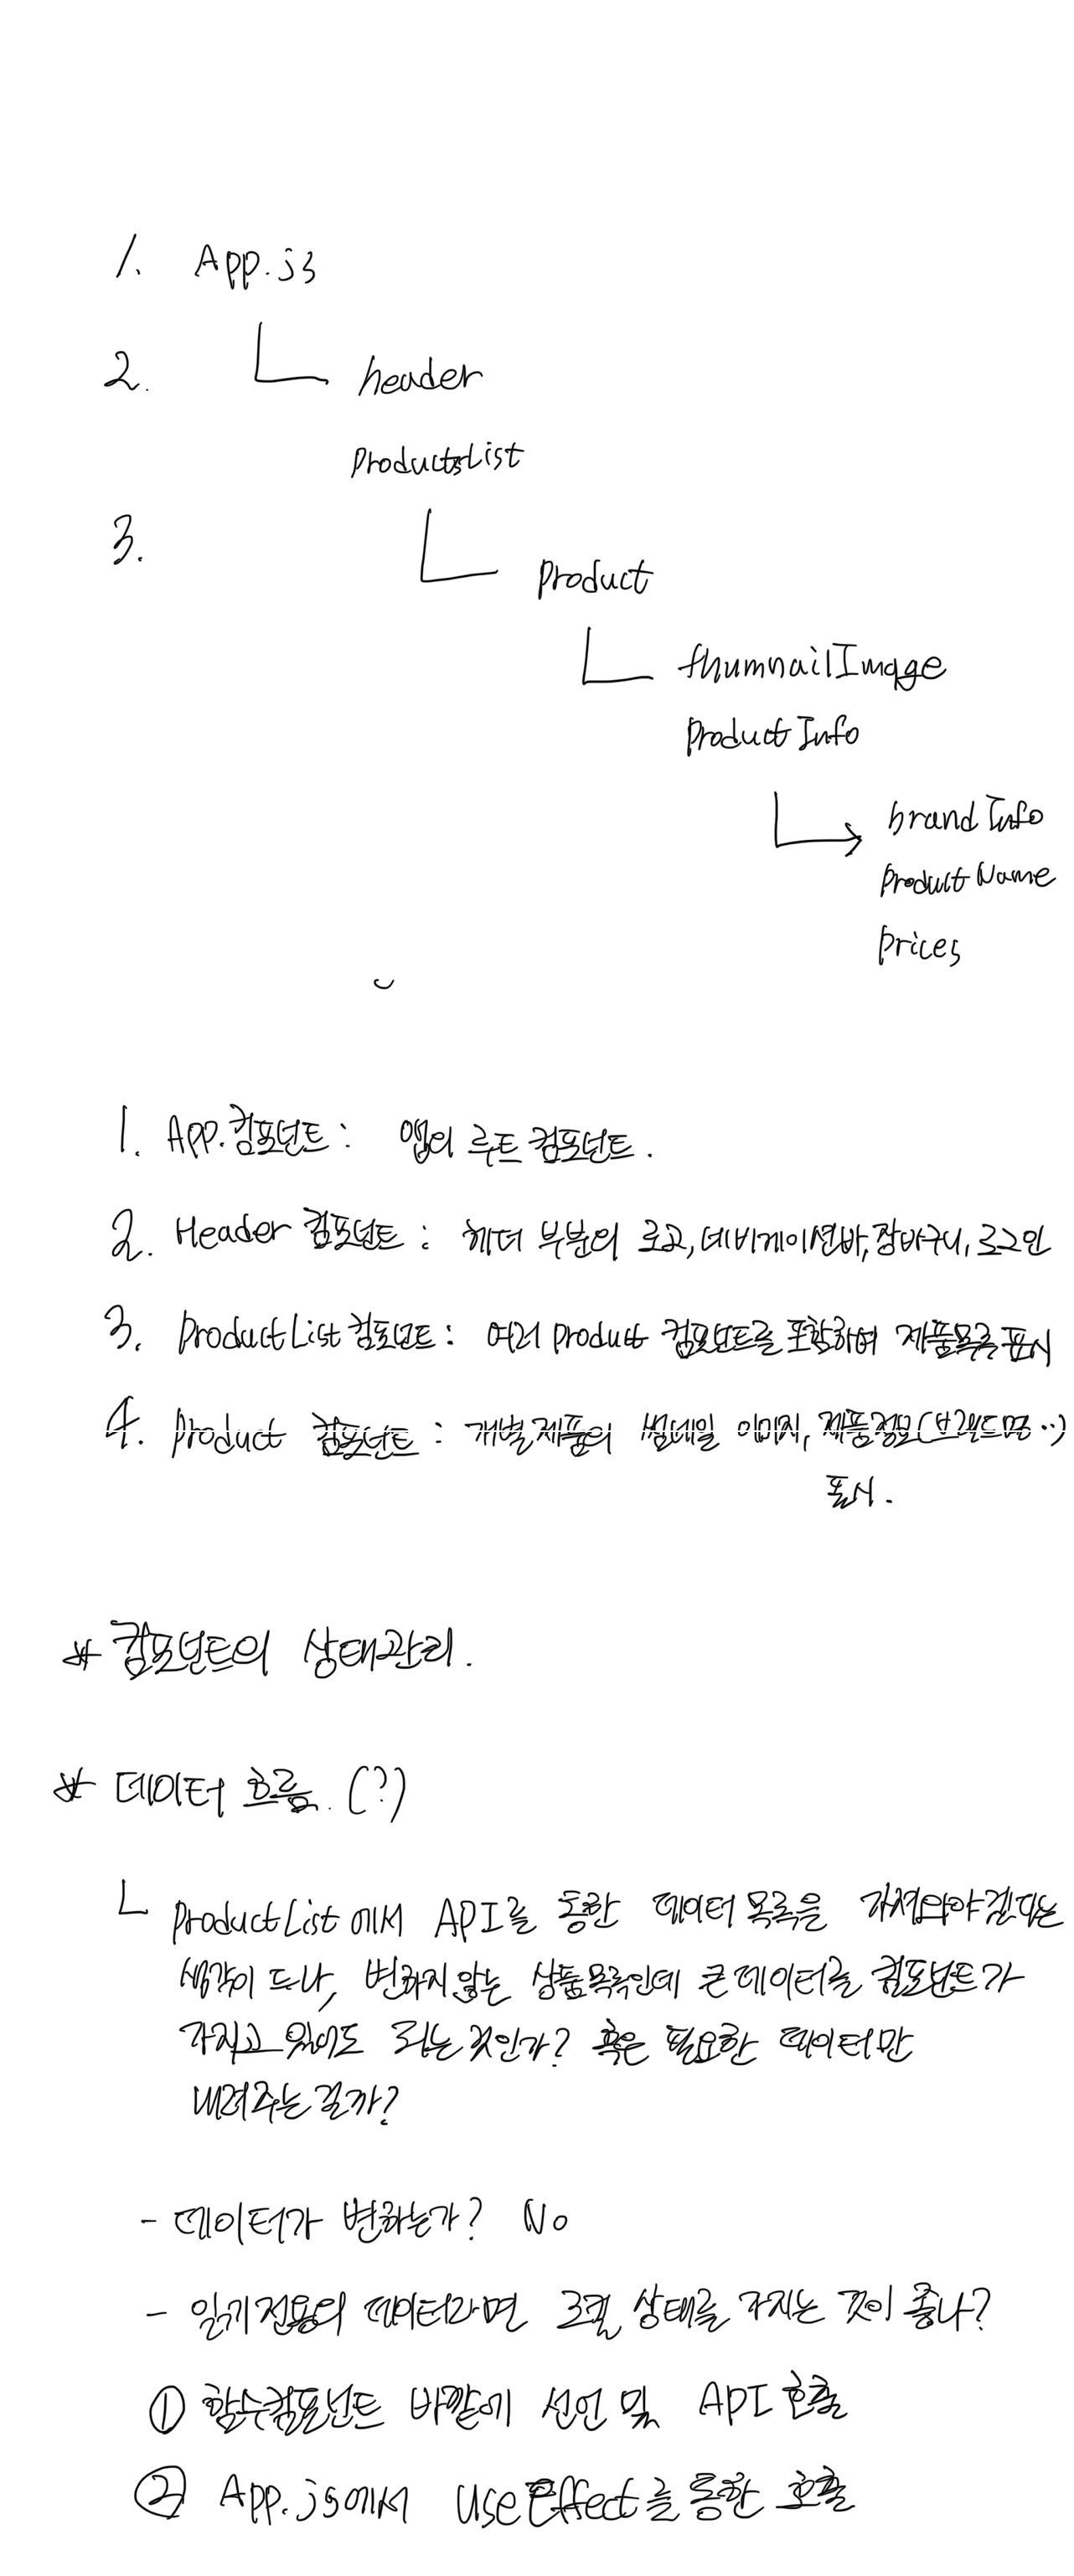 1. App.js
2. header
ProductsList
3.
Product
thumnailImage
ProductInfo
brandInfo
ProductName
Prices
1. App.컴포넌트 : 앱의 루트 컴포넌트.
2. Header 컴포넌트 : 헤더 부분의 로고, 네비게이션바, 장바구니, 로그인
3. ProductList 컴포넌트 : 여러 product 컴포넌트를 포함하여 제품목록 표시
4. product 컴포넌트 : 개별 제품의 썸네일 이미지, 제품정보(브랜드명..)
표시.
* 컴포넌트의 상태관리.
* 데이터 흐름. (?)
ㄴ ProductList에서 API를 통한 데이터 목록을 가져와야겠다는
생각이 드나, 변하지 않는 상품목록인데 큰 데이터를 컴포넌트가
가지고 있어도 되는 것인가? 혹은 필요한 데이터만
내려주는 걸까?
- 데이터가 변하는가? No
- 읽기 전용의 데이터라면 로컬 상태를 가지는 것이 좋나?
① 함수컴포넌트 바깥에 선언 및 API 호출
② App.js에서 useEffect를 통한 호출